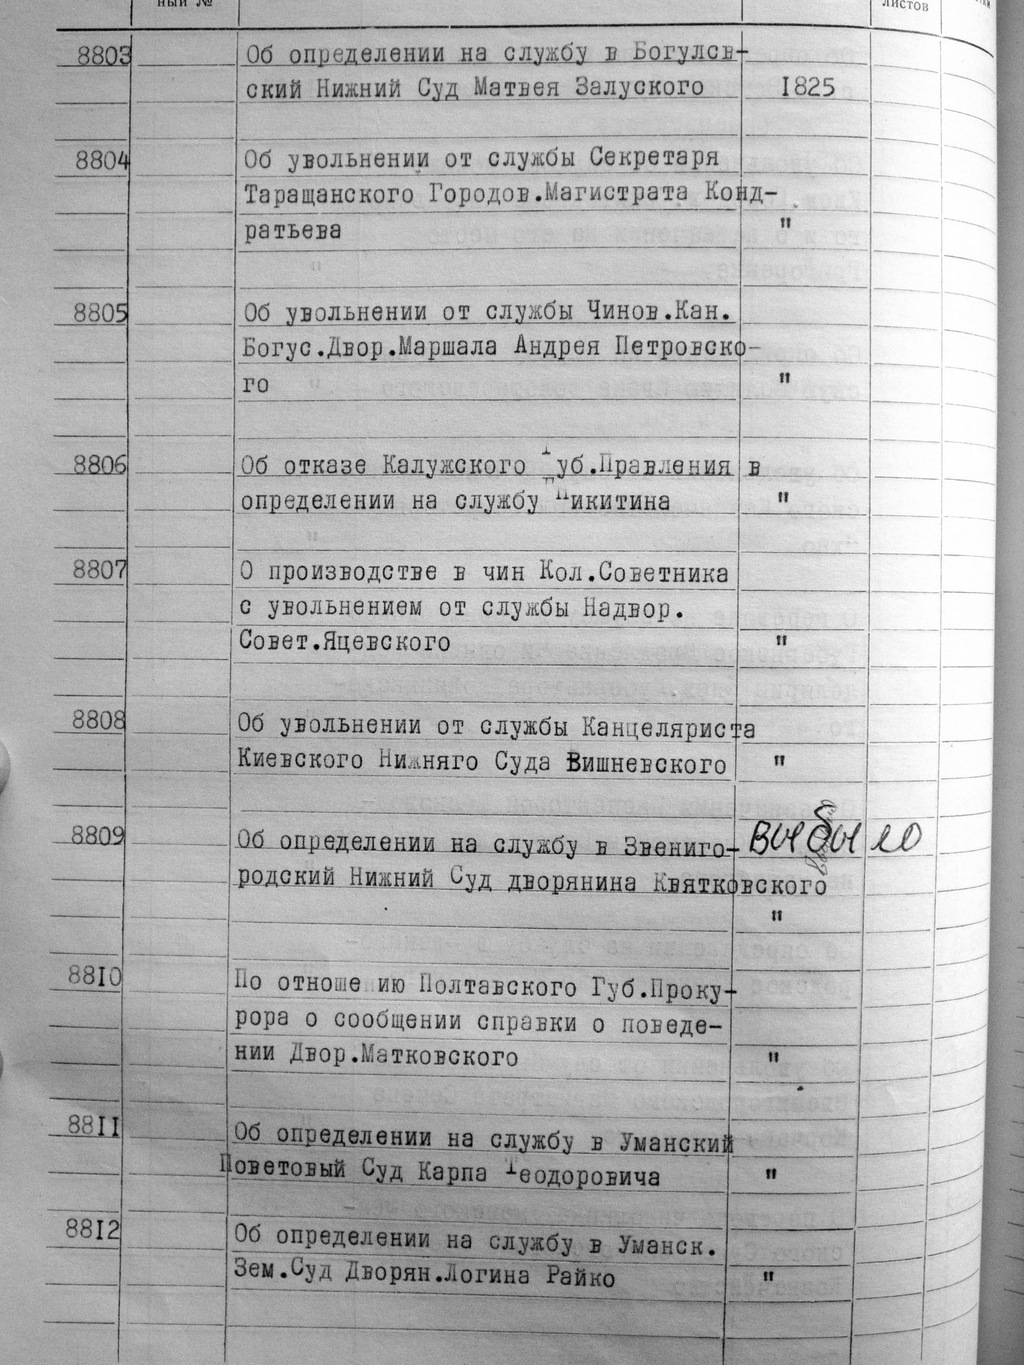 ный №
листов
8803 Об определении на службу в Богулсв-
ский Нижний Суд Матвея Залуского 1825
8804 Об увольнении от службы Секретаря
Таращанского Городов.Магистрата Конд-
ратьева "
8805 Об увольнении от службы Чинов.Кан.
Богус.Двор.Маршала Андрея Петровско-
го "
8806 Об отказе Калужского Губ.Правления в
определении на службу Никитина "
8807 О производстве в чин Кол.Советника
с увольнением от службы Надвор.
Совет.Яцевского "
8808 Об увольнении от службы Канцеляриста
Киевского Нижняго Суда Вишневского "
8809 Об определении на службу в Звениго- выбыло
родский Нижний Суд дворянина Квятковского
"
8810 По отноше ию Полтавского Губ.Проку-
рора о сообщении справки о поведе-
нии Двор.Матковского "
8811 Об определении на службу в Уманский
Поветовый Суд Карпа Теодоровича "
8812 Об определении на службу в Уманск.
Зем.Суд Дворян.Логина Райко "